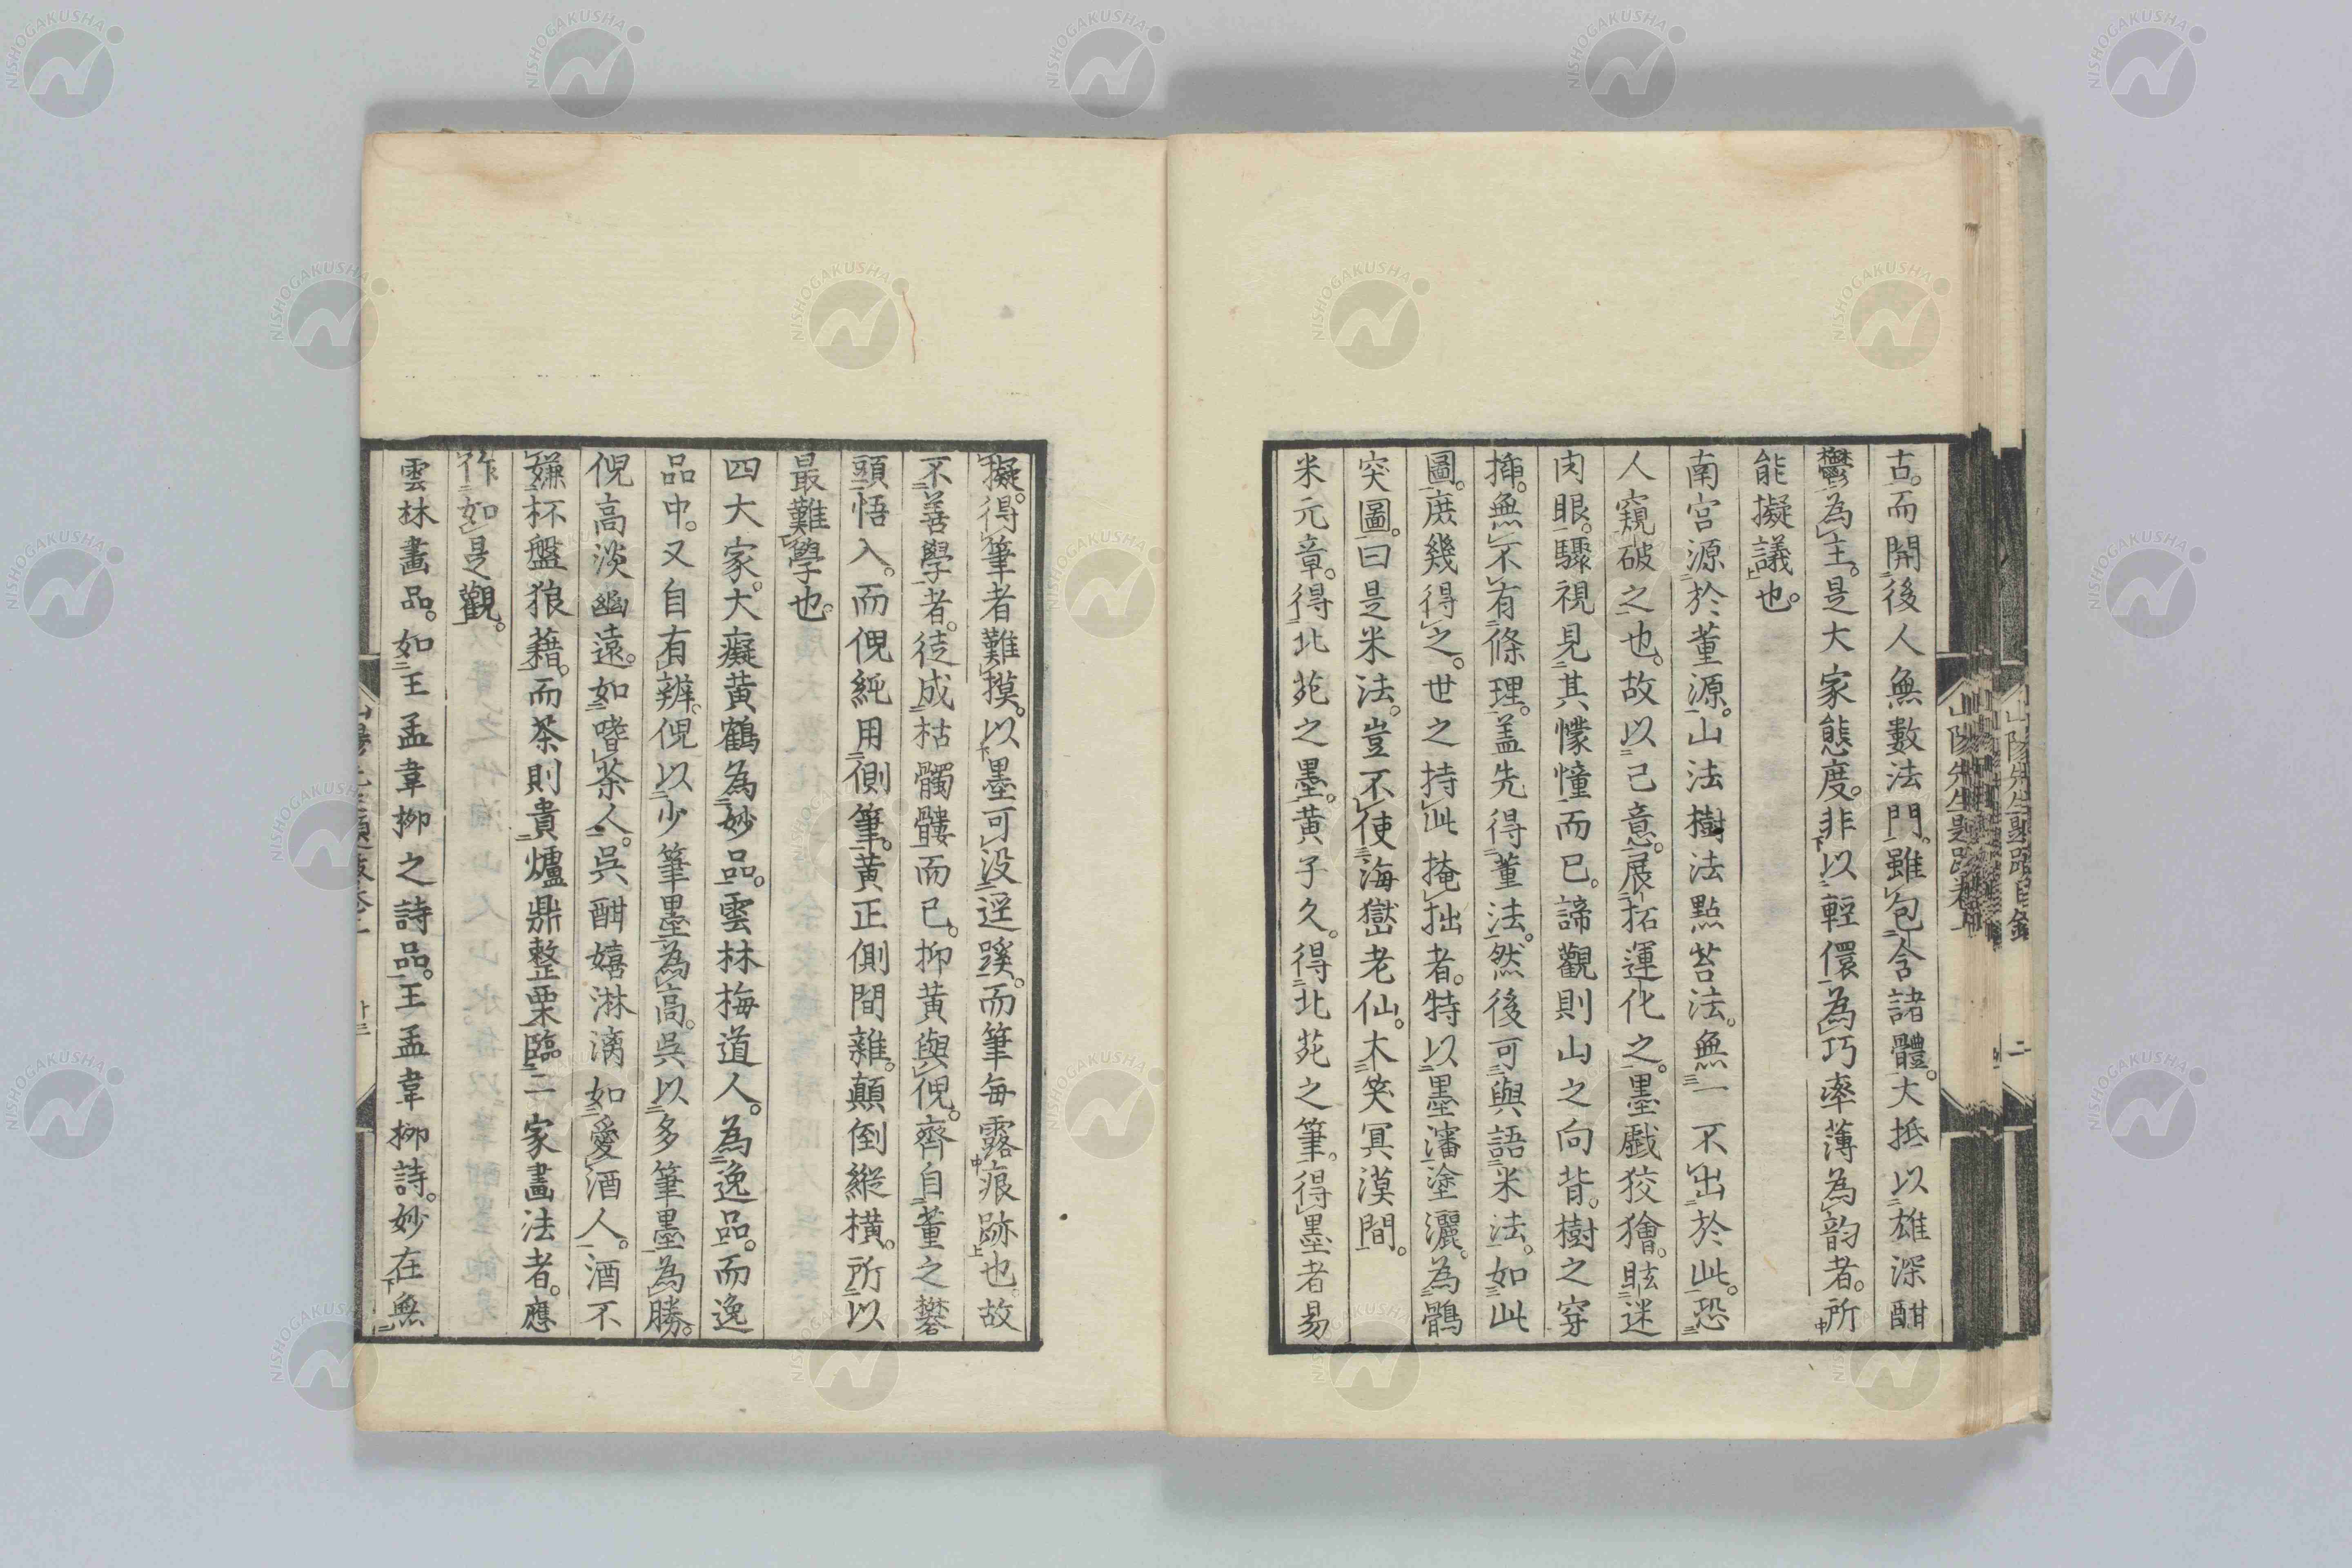 古。而開後人無數法門。雖包含諸體。大抵以雄深酣
鬱為主。是大家態度。非以輕儇為巧率薄為韵者。所
能擬議也。
南宮源於董源。山法樹法點苔法。無一不出於此。恐
人窺破之也。故以己意。展拓運化之。墨戲狡獪。眩迷
肉眼。驟視見其懞憧而已。諦觀則山之向背。樹之穿
揷。無不有條理。盖先得董法。然後可與語米法。如此
圖。庶幾得之。世之持此掩拙者。特以墨瀋塗灑。為鶻
突圖。曰是米法。豈不使海嶽老仙。大笑冥漠間。
米元章。得北苑之墨。黄子久。得北苑之筆。得墨者易
擬。得筆者難摸。以墨可没逕蹊。而筆毎露痕跡也。故
不善學者。徒成枯髑髏而已。抑黄與倪。齊自董之礬
頭悟入。而倪純用側筆。黄正側間雜。顛倒縱橫。所以
最難學也。
四大家。大癡黄鶴為妙品。雲林梅道人。為逸品。而逸
品中。又自有辨。倪以少筆墨為高。呉以多筆墨為勝。
倪高淡幽遠。如嗜茶人。呉酣嬉淋漓如愛酒人。酒不
嫌杯盤狼藉。而茶則貴爐鼎整栗臨二家畫法者。應
作如是觀。
雲林畵品。如王孟韋柳之詩品。王孟韋柳詩。妙在無
山陽先生題跋卷上
山陽先生題跋目錄
二
廿三
NISHOGAKUSHA